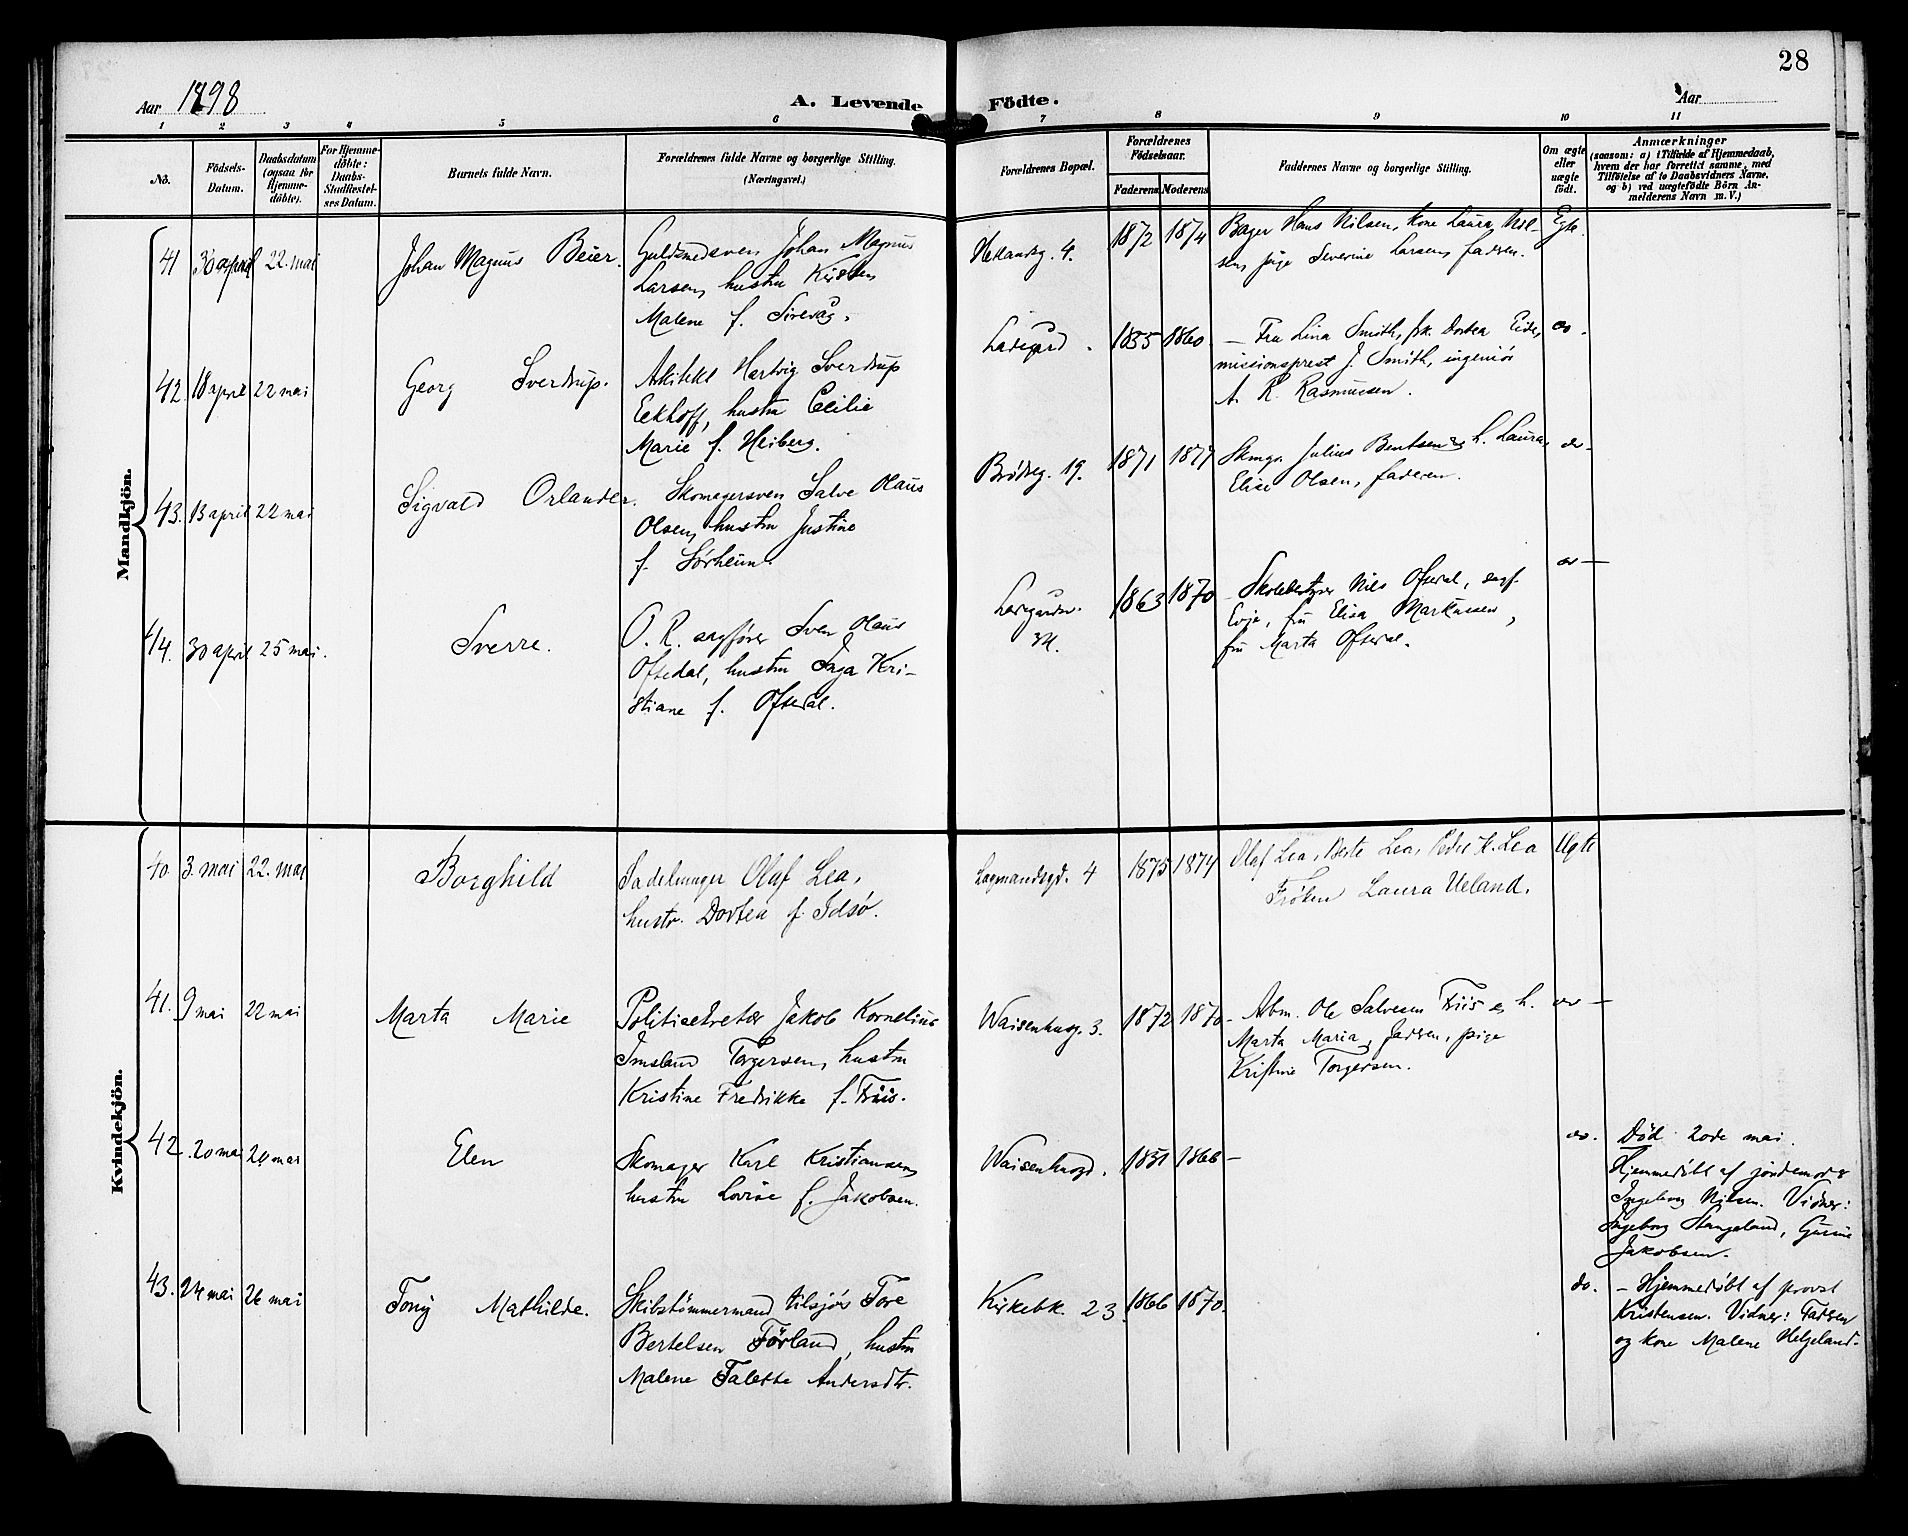 28
Aar 1898
A. Levende Födte.
Aar
1 2 3 4 5 6 7 8 9 10 11
No.
Födsels-
Datum.
Daabsdatum
(ogsaa for
Hjemme-
döbte).
For Hjemme-
döbte:
Daabs-
Stadfæstel-
ses Datum.
Barnets fulde Navn.
Forældrenes fulde Navne og borgerlige Stilling.
(Næringsvei.)
Forældrenes Bopæl.
Forældrenes
Födselsaar.
Faderens Moderens
Faddernes Navne og borgerlige Stilling.
Om ægte
eller
uægte
födt.
Anmærkninger
(saasom: a) i Tilfælde af Hjemmedaab,
hvem der har forrettet samme, med
Tilföielse af to Daabsvidners Navne,
og b) ved uægtefödte Börn An-
melderens Navn m. V.)
Mandkjön.
41 30 april 22. mai
Johan Magnus Beier.
Guldsmedsven Johan Magnus
Larsen, hustru Kirsten
Malene f. Sirevåg.
Hetlandsg. 4.
1872 1874
Bager Hans Nilsen, kone Laura Nil-
sen, pige Severine Larsen, faderen.
Egte.
42. 18 april 22 mai
Georg Sverdrup.
Arkitekt Hartvig Sverdrup
Eckhoff, hustru Cecilie
Marie f. Heiberg.
Ladegård.
1855 1860
— Fru Lina Smith, frk. Dortea Eide,
missionsprest J. Smith, ingeniør
A. R. Rasmussen.
do.
43. 13 april 22 mai
Sigvald Orlander.
Skomagersven Salve Olaus
Olsen, hustru Justine
f. Sørheim.
Brødreg. 19.
1871 1877
Skmgr. Julius Bentsen & h. Laura,
Elise Olsen, faderen.
do-
44. 30 april 25 mai.
Sverre.
O. R. sagfører Sven Olaus
Oftedal, hustru Inga Kri-
stiane f. Oftedal.
1863 1870
Skolebestyrer Nils Oftedal, sagf.
Evje, fru Elisa Markussen,
fru Marta Oftedal.
do —
Kvindekjön.
40 3. mai 22. mai
Borghild
Sadelmager Olaf Lea,
hustr. Dortea f. Idsø.
Lagmandsgd. 4
1875 1874
Olaf Lea, Berte Lea, Peder H. Lea
Frøken Laura Ueland.
41. 9 mai 22 mai
Marta Marie
Politisekretær Jakob Kornelius
Imsland Torgersen, hustru
Kristine Fredrikke f. Friis.
Waisenhusg. 3.
1872 1870
— Arbm. Ole Salvesen Friis & h.
Marta Maria, faderen, pige
Kristine Torgersen.
do —
42 20 mai 20 mai
Elen
Skomager Karl Kristiansen,
hustru Lovise f. Jakobsen.
Waisenhusgd.
1851 1866 —
do.
Død 20de mai.
Hjemmedøbt af jordemoder
Ingeborg Nilsen. Vidner:
Ingeborg Stangeland, Gurine
Jakobsen.
43. 24 mai 26 mai
Tony Mathilde.
Skibstømmermand tilsjøs Tore
Bertelsen Førland, hustru
Malene Talette Andersdtr.
Kirkebk. 23.
1866 1870.
do.
— Hjemmedøbt af provst
Kristensen. Vidner: Faderen
og kone Malene Helgeland.